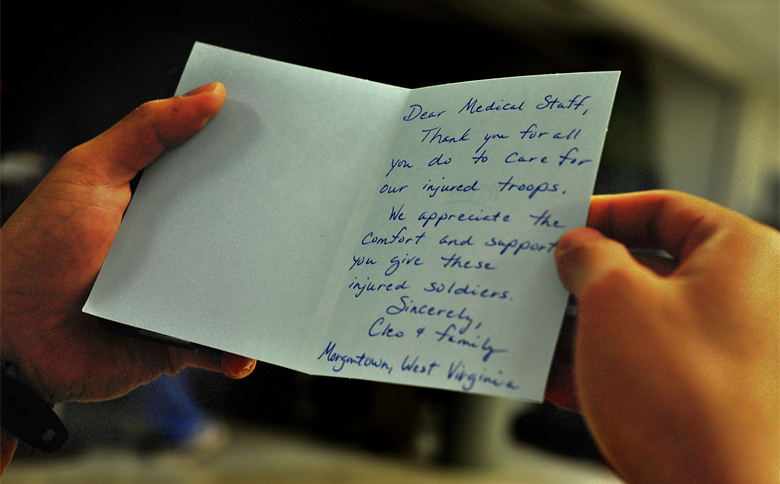 Dear Medical Staff,
Thank you for all
you do to care for
our injured troops.
We appreciate the
comfort and support
you give these
injured soldiers.
Sincerely,
Cleo & family
Morgantown, West Virginia